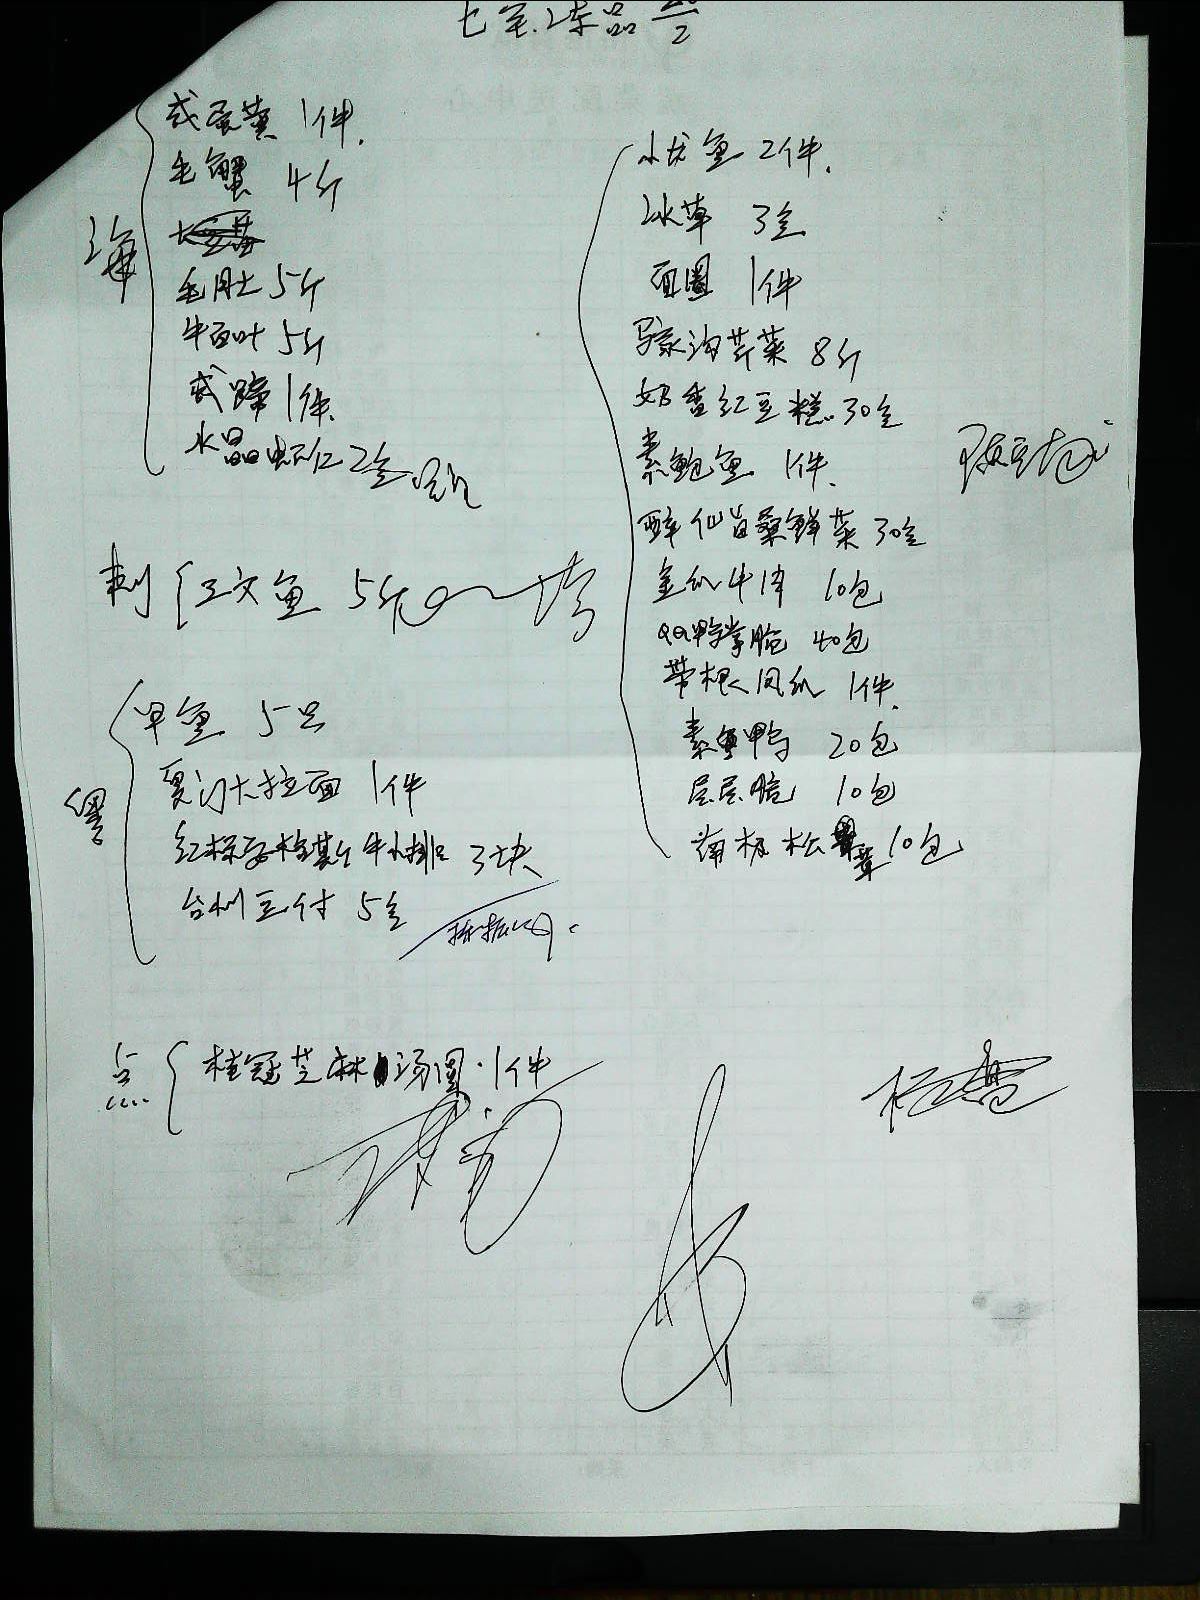 七宝冻品 20/2
海
咸蛋黄 1件.
毛蟹 4斤
毛肚 5斤
牛百叶 5斤
咸蹄 1件.
水晶虾仁 2盒
刺 红文鱼 5斤
粤
甲鱼 5只
厦门大拉面 1件
红标安格斯牛小排 3块
台州豆付 5盒
点
桂冠芝麻汤圆. 1件
小龙鱼 2件.
冰草 3盒
面圈 1件
马家沟芹菜 8斤
奶香红豆糕. 30盒
素鲍鱼 1件.
醉仙笛桑鲜菜 30盒
金瓜牛肉 10包
QQ鸭掌脆 40包
带根凤爪 1件.
素鱼鸭 20包
层层脆 10包
南极松茸 10包